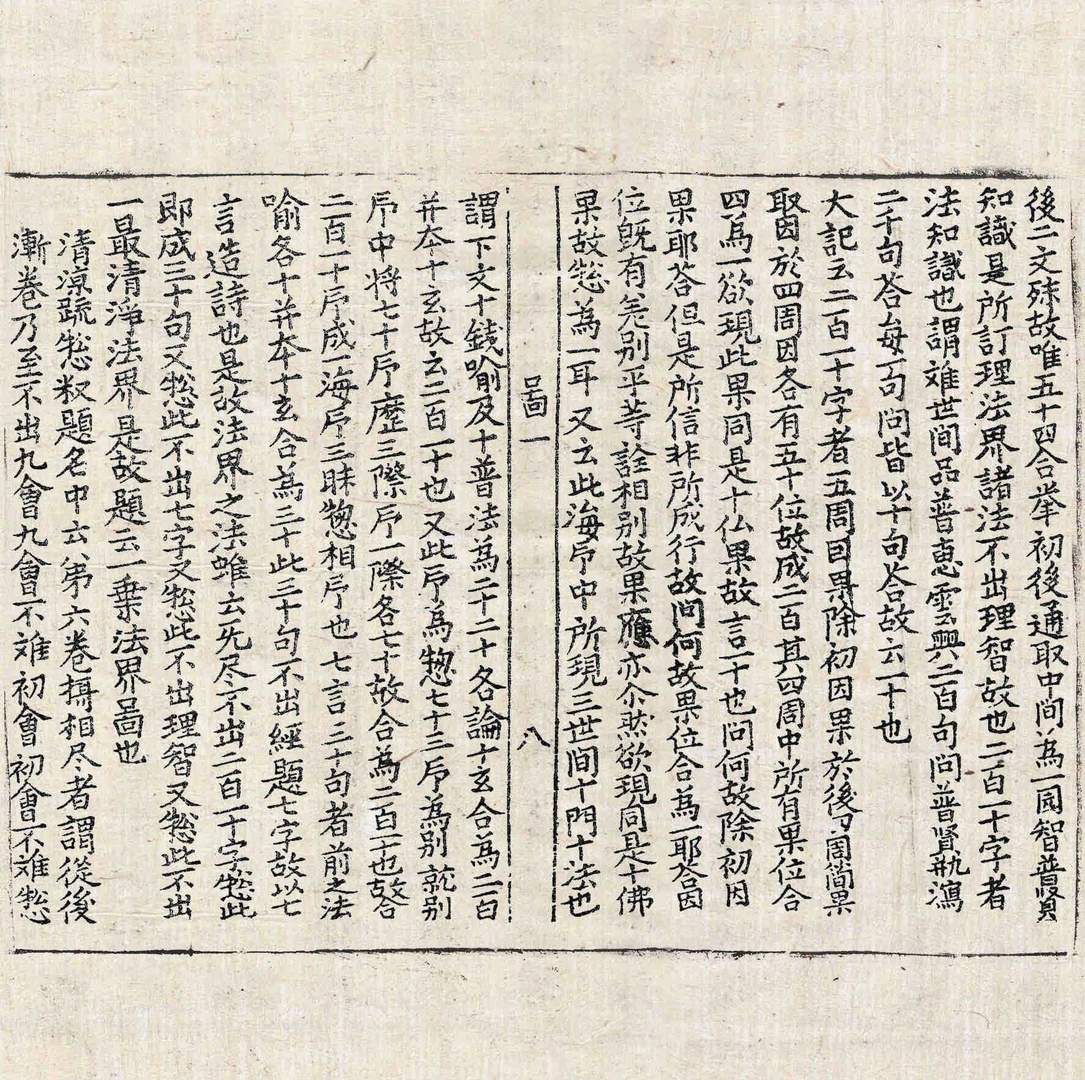 後二文殊故唯五十四合举初後通取中間為一圎智普賢
知識是所訂理法界諸法不出理智故也二百一十字者
法知識也謂难世間品普惠雲興二百句問普贤瓶瀉
二千句答每一句問皆以十句荅故云一十也
大記云二百一十字者五周因果除初因果於後四周簡果
取因於四周因各有五十位故成二百其四周中所有果位合
四為一欲現此果同是十仏果故言一十也問何故除初因
果耶荅但是所信非所成行故問何故果位合為一耶荅因
位旣有差别乎等詮相别故果應亦尒然欲現同是十佛
果故惣為一耳又云此海印中所現三世間十門十法也
啚一 八
謂下文十錢喻及十普法為二十二十各論十玄合為二百
并本十玄故云二百一十也又此印為惣七十三印為别就别
印中将七十印歷三際印一際各七十故合為二百一十也故合
二百一十印成一海印三昧惣相印也七言三十句者前之法
喻各十并本十玄合為三十此三十句不出經題七字故以七
言造詩也是故法界之法雖云无尽不出二百一十字惣此
即成三十句又惣此不出七字又惣此不出理智又惣此不出
一最清淨法界是故題云一乗法界啚也
清凉䟽惣釈題名中云弟六卷攝相尽者謂從後
漸卷乃至不出九會九會不难初會初會不难惣